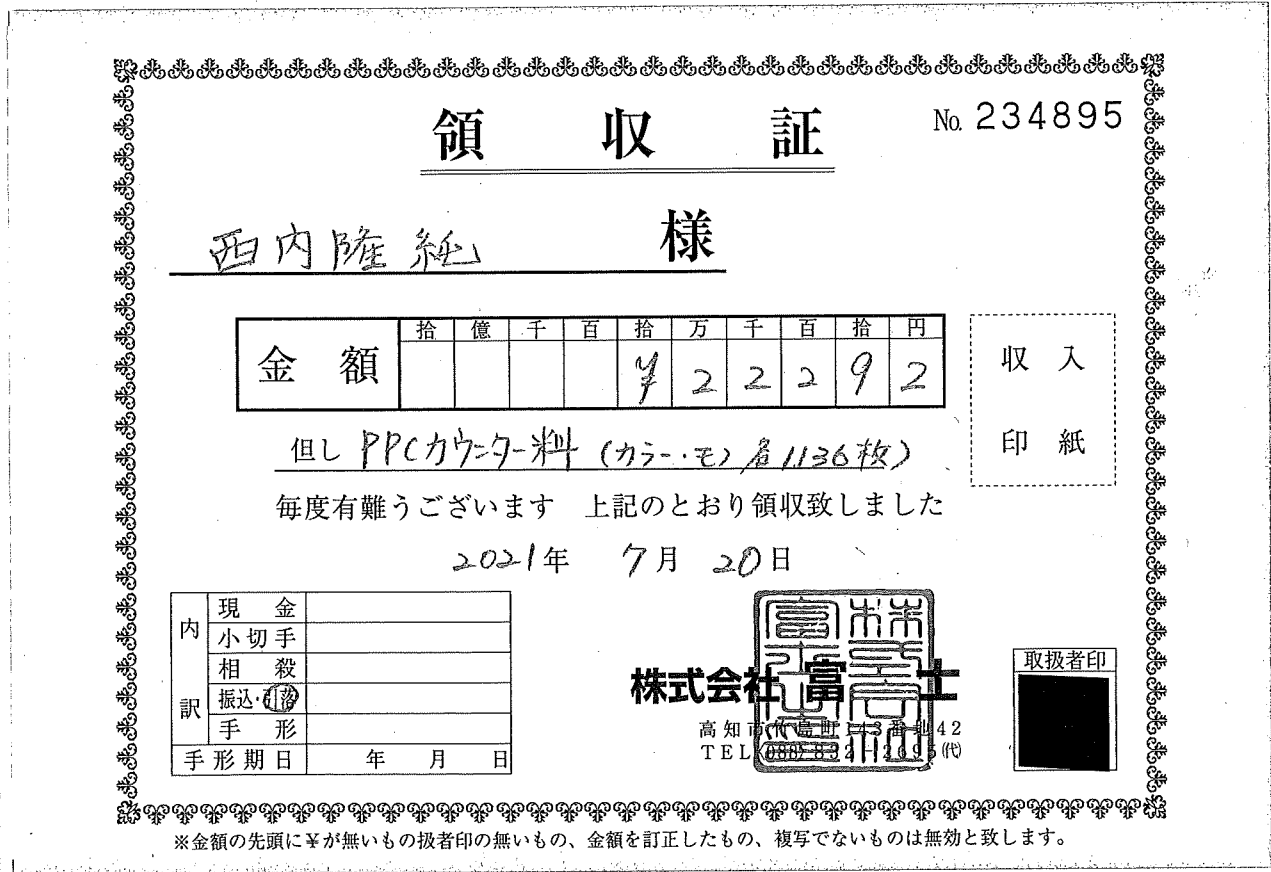 領収証
No. 234895
西内隆純 様
金額
拾 億 千 百 拾 万 千 百 拾 円
¥ 2 2 2 9 2
但し PPCカウンター料 (カラー・モ) 1136枚)
収入
印紙
毎度有難うございます 上記のとおり領収致しました
2021年 7月 20日
内訳
現金
小切手
相殺
振込・引落
手形
手形期日 年 月 日
株式会社 富士
高知市竹島町143番地42
TEL(088)832-2695(代)
取扱者印
※金額の先頭に¥が無いもの扱者印の無いもの、金額を訂正したもの、複写でないものは無効と致します。